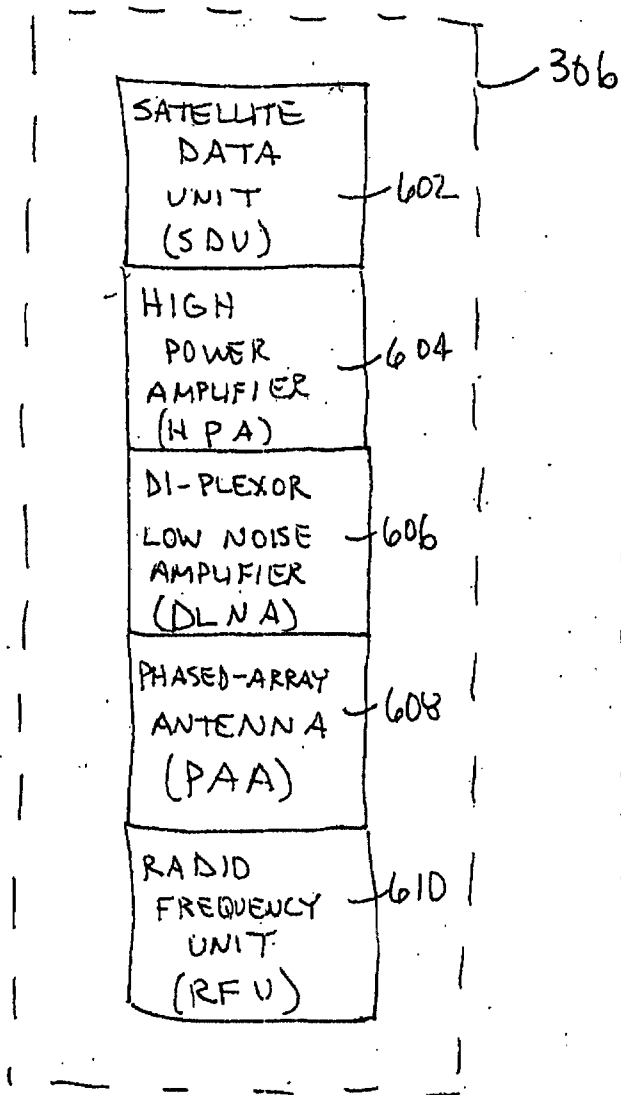 306
SATELLITE
DATA
UNIT
(SDU)
602
HIGH
POWER
AMPLIFIER
(HPA)
604
DI-PLEXOR
LOW NOISE
AMPLIFIER
(DLNA)
606
PHASED-ARRAY
ANTENNA
(PAA)
608
RADIO
FREQUENCY
UNIT
(RFU)
610